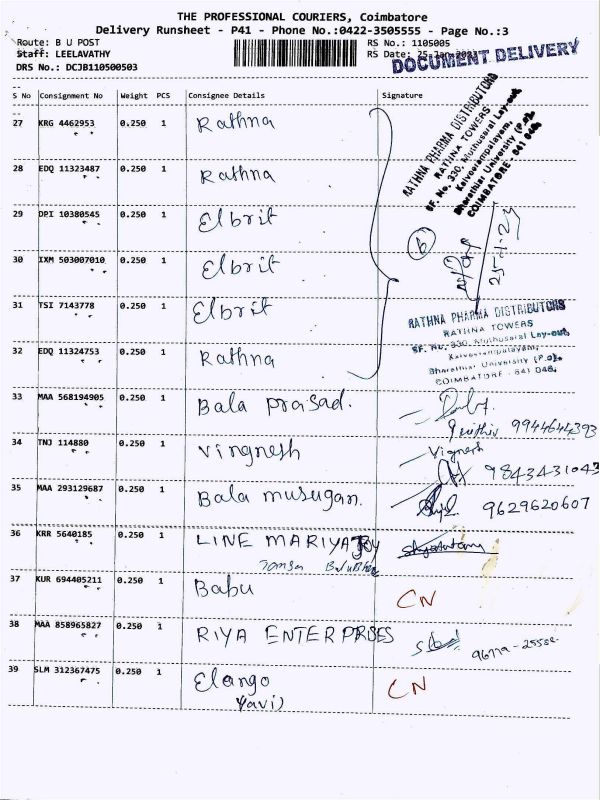 THE PROFESSIONAL COURIERS, Coimbatore
Delivery Runsheet - P41 - Phone No.:0422-3505555 - Page No.:3
Route: B U POST RS No.: 1105005
Staff: LEELAVATHY RS Date: 25-Jan-2023
DRS No.: DCJB110500503
DOCUMENT DELIVERY
S No Consignment No Weight PCS Consignee Details Signature
27 KRG 4462953 0.250 1 Rathna
28 EDQ 11323487 0.250 1 Rathna
29 DPI 10380545 0.250 1 Elbrit
30 IXM 503007010 0.250 1 Elbrit
31 TSI 7143778 0.250 1 Elbrit
32 EDQ 11324753 0.250 1 Rathna
RATHNA PHARMA DISTRIBUTORS
RATHNA TOWERS
SF. No. 330, Muthusarai Lay-out,
Kalveerampalayam,
Bharathiar University (P.o),
COIMBATORE - 641 046.
6
25-1-23
RATHNA PHARMA DISTRIBUTORS
RATHNA TOWERS
SF. No. 330, Muthusarai Lay-out,
Kalveerampalayam,
Bharathiar University (P.o),
COIMBATORE - 641 046.
33 MAA 568194905 0.250 1 Bala praisad.
9944644393
34 TNJ 114880 0.250 1 vingnesh Vignesh
9843431043
35 MAA 293129687 0.250 1 Bala musugan. 9629620607
36 KRR 5640185 0.250 1 LINE MARIYA
37 KUR 694405211 0.250 1 Babu CN
38 MAA 858965827 0.250 1 RIYA ENTERPRISES
39 SLM 312367475 0.250 1 Elango CN